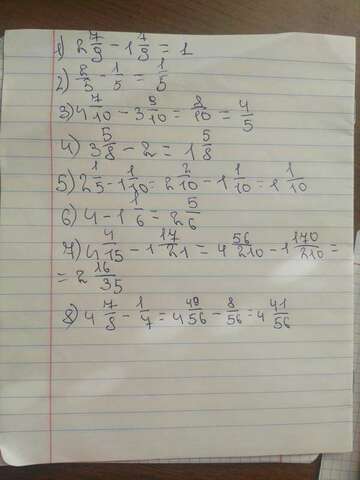 1) 2 7/9 - 1 7/9 = 1
2) 2/5 - 1/5 = 1/5
3) 4 7/10 - 3 9/10 = 8/10 = 4/5
4) 3 5/8 - 2 = 1 5/8
5) 2 1/5 - 1 1/10 = 2 2/10 - 1 1/10 = 1 1/10
6) 4 - 1 1/6 = 2 5/6
7) 4 4/15 - 1 17/21 = 4 56/210 - 1 170/210 =
= 2 16/35
8) 4 7/8 - 1/7 = 4 49/56 - 8/56 = 4 41/56